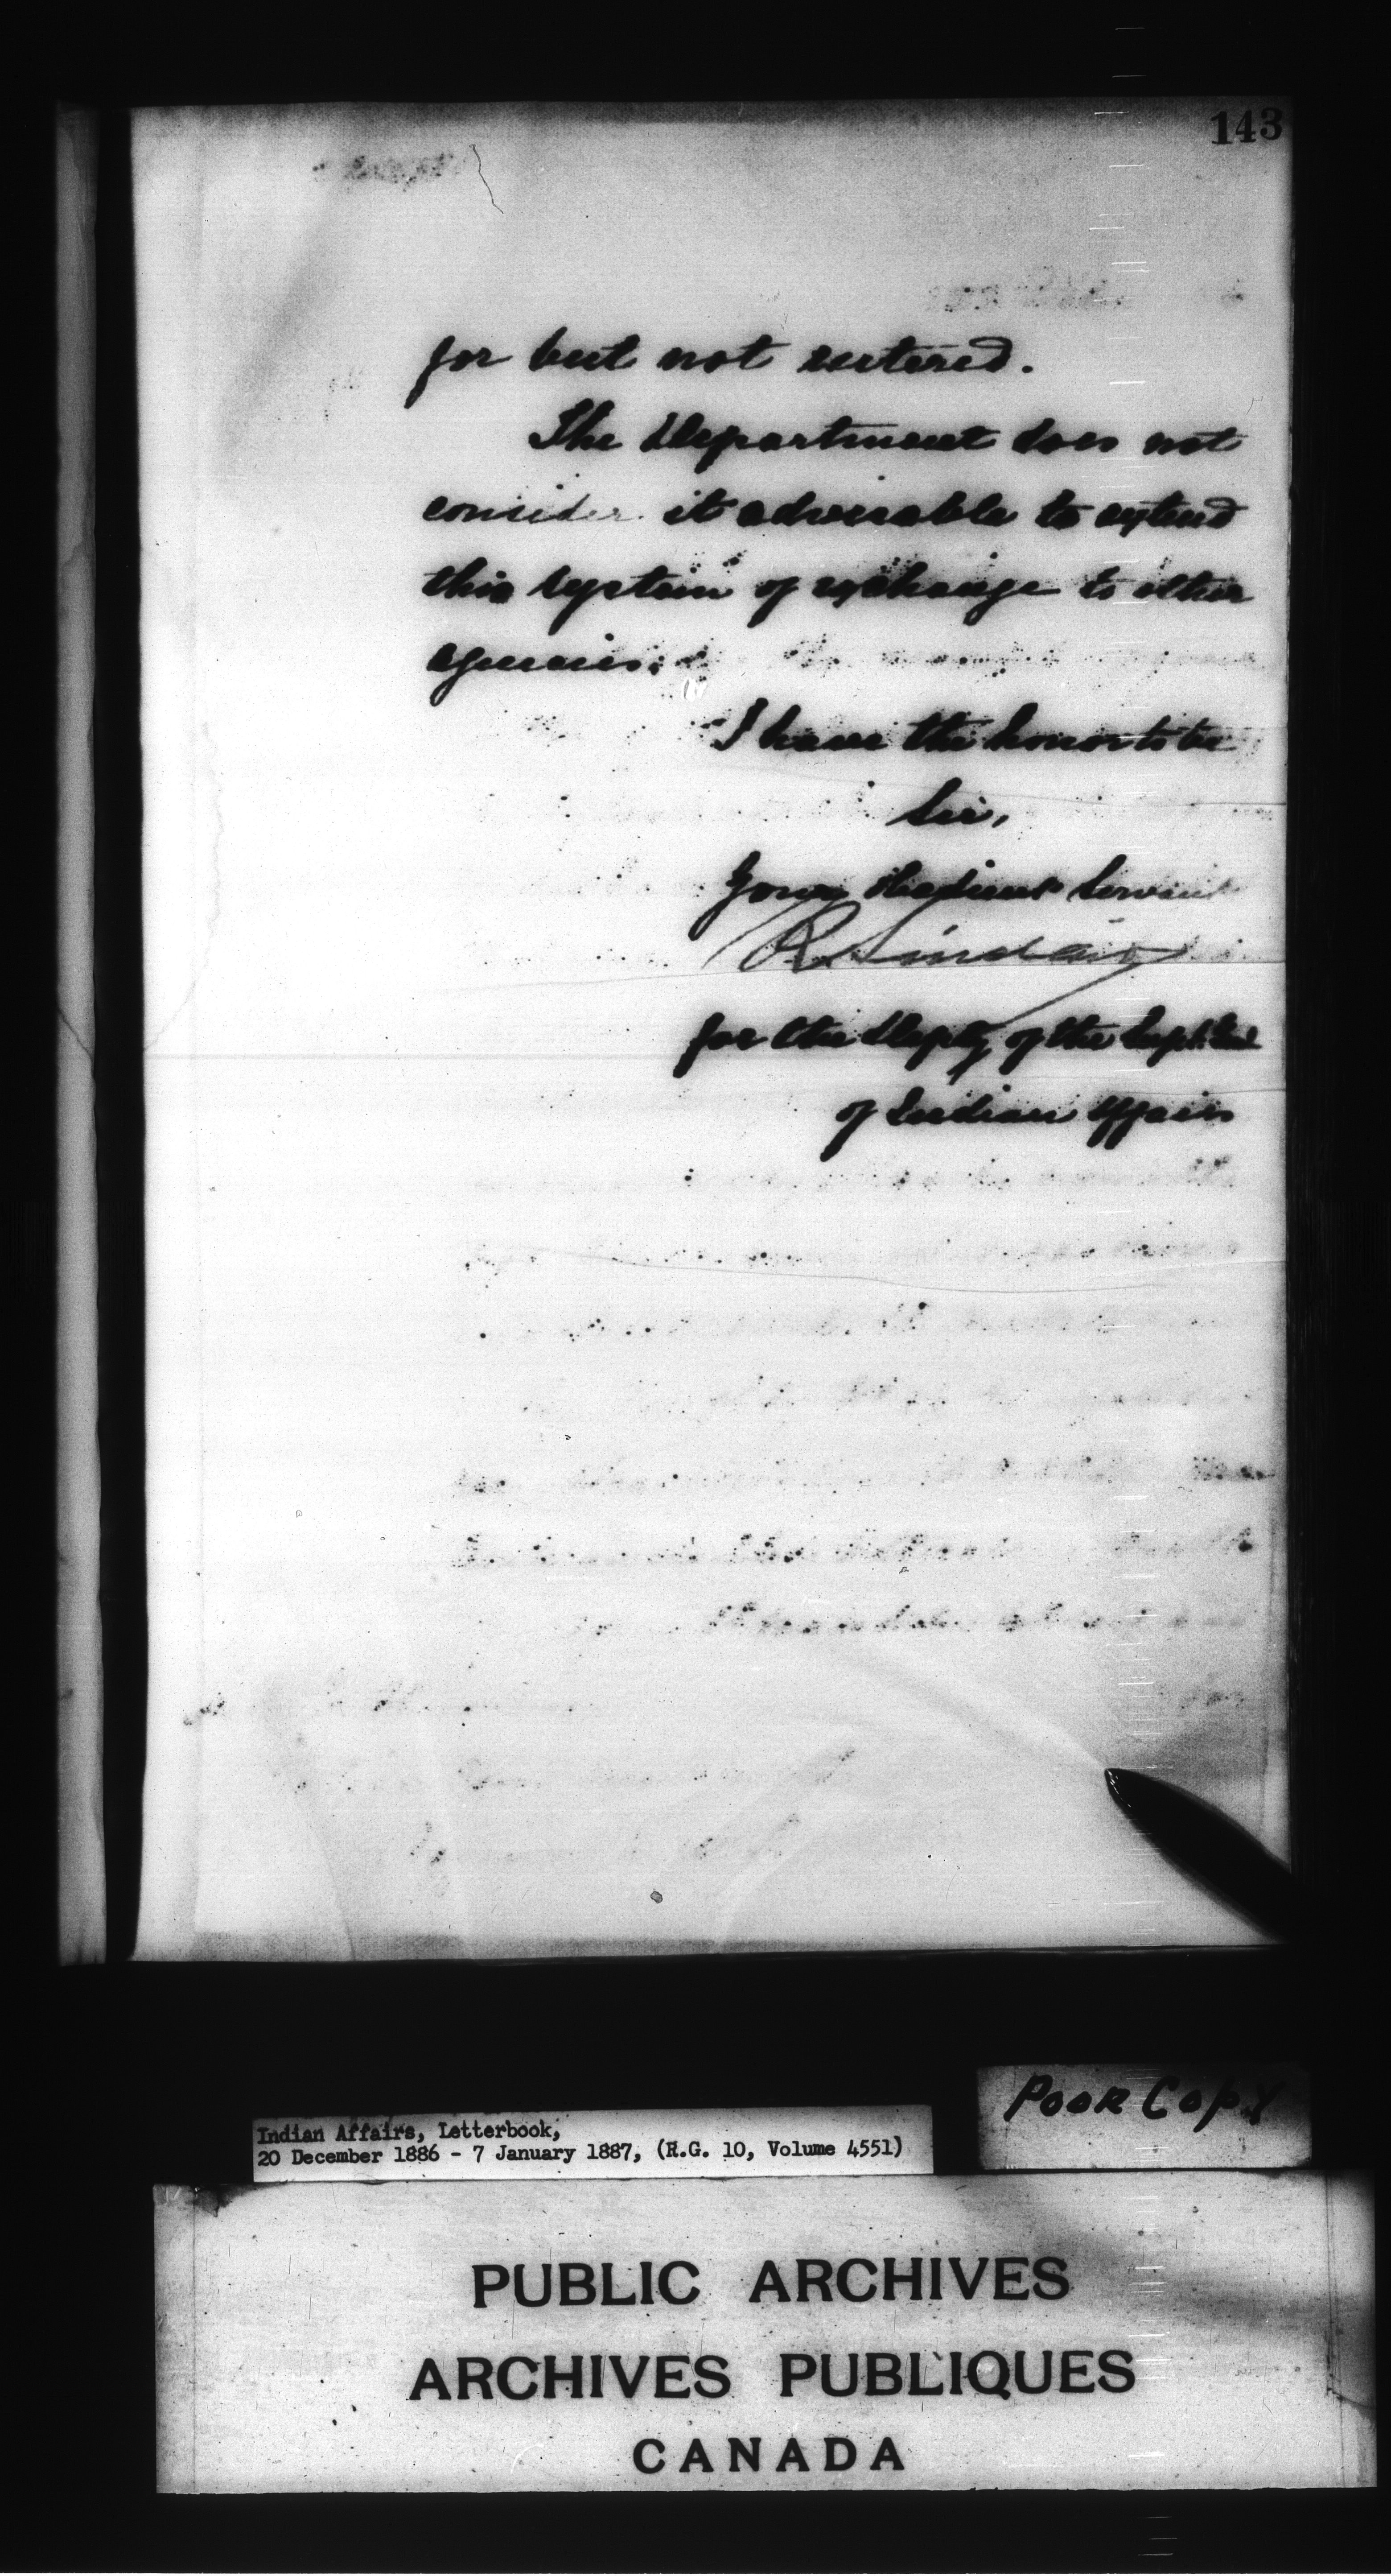 143
for but not entered.
The Department does not
consider it advisable to extend
this system of exchange to other
agencies.
I have the honor to be
Sir,
Your obedient Servant
R Sinclair
for the Depty of the Supt. Genl
of Indian Affairs
Poor Copy
Indian Affairs, Letterbook,
20 December 1886 - 7 January 1887, (R.G. 10, Volume 4551)
PUBLIC ARCHIVES
ARCHIVES PUBLIQUES
CANADA